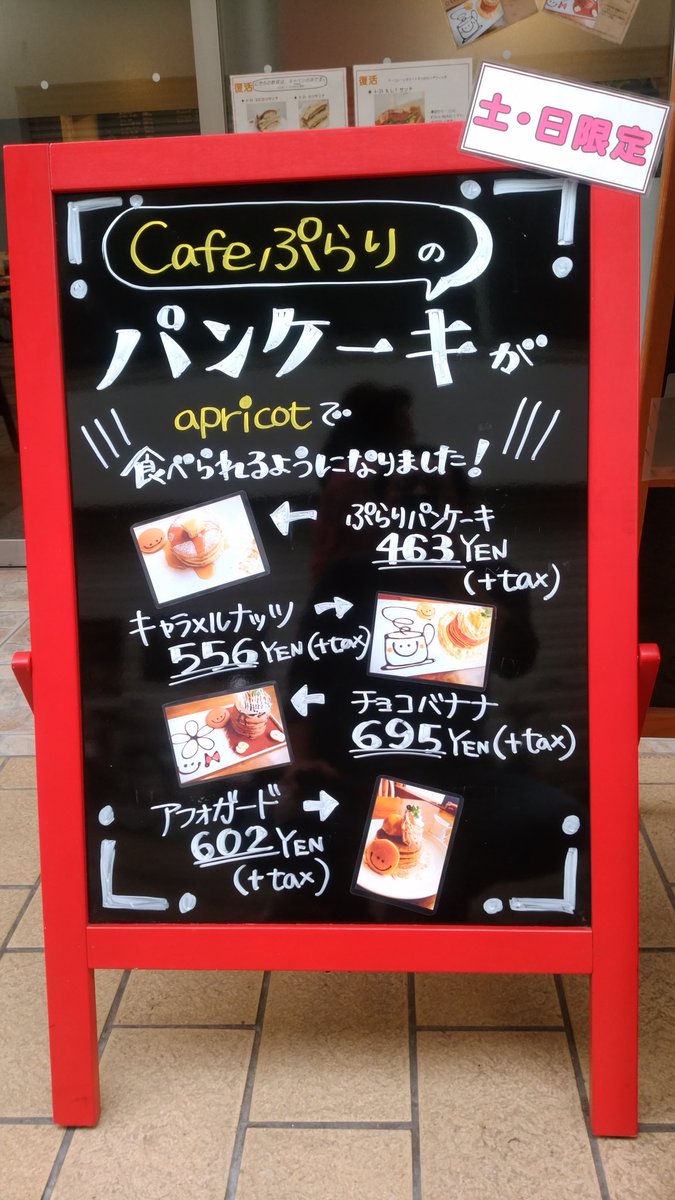 復活
復活
土・日限定
Cafeぷらりの
パンケーキが
apricotで
食べられるようになりました!
ぷらりパンケーキ
463YEN
(+tax)
キャラメルナッツ
556YEN(+tax)
チョコバナナ
695YEN(+tax)
アフォガード
602YEN
(+tax)